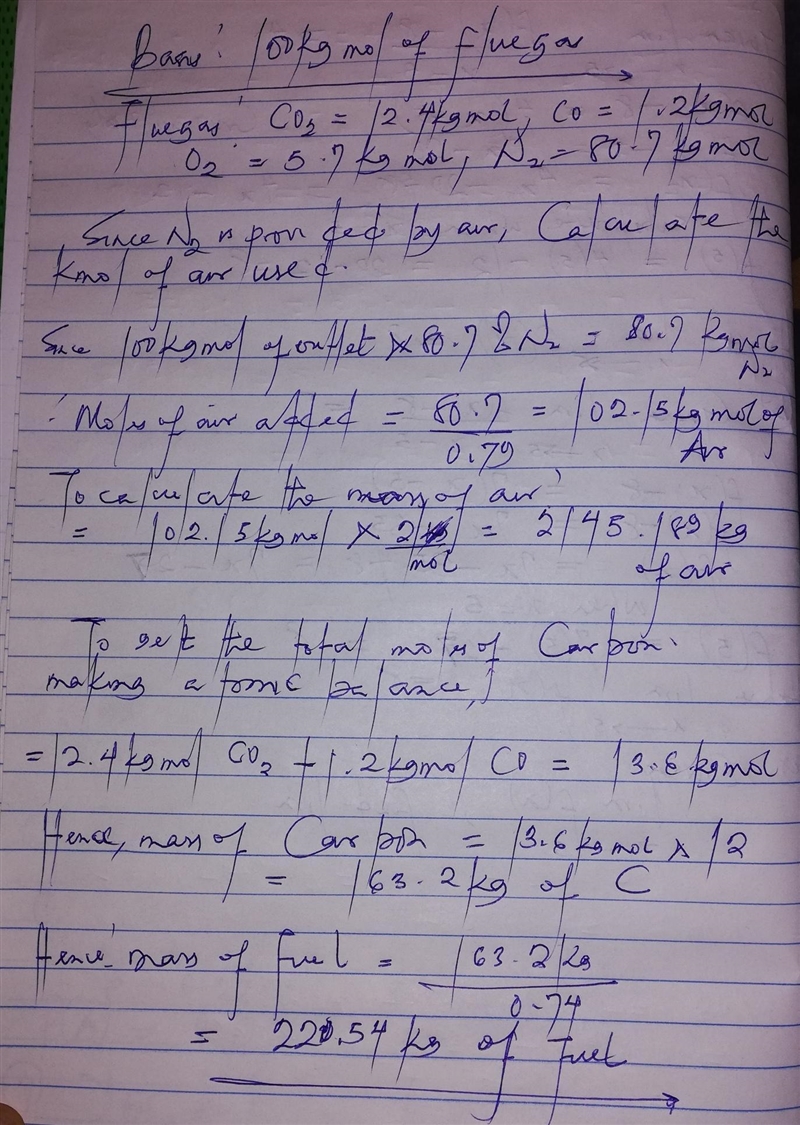 Basis: 100kg mol of fluegas
Fluegas: CO2 = 12.4kgmol, CO = 1.2kgmol
O2 = 5.7 kg mol, N2 = 80.7 kg mol
Since N2 is provided by air, Calculate the
kmol of air used.
Since 100kgmol of outlet × 80.7% N2 = 80.7 kgmol
N2
∴ Moles of air added = 80.7 / 0.79 = 102.15kgmol of
Air
To calculate the mass of air
= 102.15kgmol × / mol = 2145.189 kg
of air
To get the total moles of Carbon.
making atomic balance,
= 12.4kgmol CO2 + 1.2kgmol CO = 13.6 kgmol
Hence, mass of Carbon = 13.6kgmol × 12
= 163.2kg of C
Hence: mass of Fuel = 163.2Kg / 0.74
= 220.54 kg of Fuel